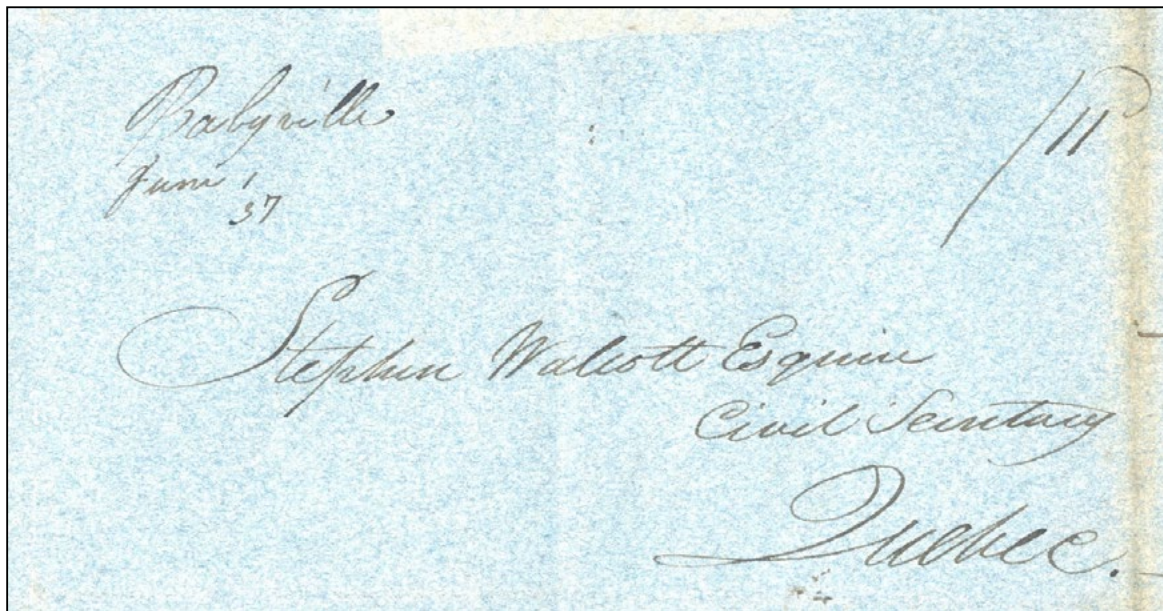 Babyville
June 1
37
/11
Stephen Walcott Esquire
Civil Secretary
Quebec.